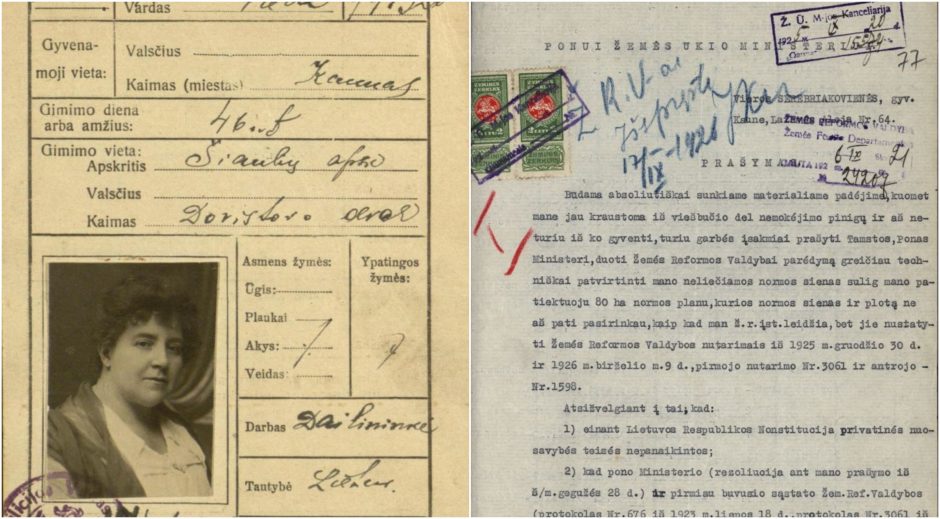 Vardas
Gyvena-
moji vieta:
Valsčius
Kaimas (miestas) Kaunas
Gimimo diena
arba amžius: 46 m.
Gimimo vieta:
Apskritis Šiaulių apskr.
Valsčius
Kaimas
Asmens žymės:
Ūgis:
Plaukai
Akys:
Veidas:
Ypatingos
žymės:
Darbas Dailininkė
Tautybė
Ž. Ū. M-jos Kanceliarija
77
PONUI ŽEMĖS ŪKIO MINISTERIUI
Vieros SEREBRIAKOVIENĖS, gyv.
Kaune, Nr. 64.
ŽEMĖS REFORMOS VALDYBA
Žemės Fondo Departamentas
GAUTA 192
6 IX 21
Nr. 24207
R. V-ai
17/IX-1926
PRAŠYMAS
Būdama absoliutiškai sunkiame materialiame padėjime, kuomet
mane jau kraustoma iš viešbučio dėl nemokėjimo pinigų ir aš ne-
turiu iš ko gyventi, turiu garbės įsakmiai prašyti Tamstos, Ponas
Ministeri, duoti Žemės Reformos Valdybai parėdymą greičiau tech-
niškai patvirtinti mano neliečiamos normos sienas sulig mano pa-
tiektuoju 80 ha normos planu, kurios normos sienas ir plotą ne
aš pati pasirinkau, kaip kad man ž.r.įst. leidžia, bet jie nustaty-
ti Žemės Reformos Valdybos nutarimais iš 1925 m. gruodžio 30 d.
ir 1926 m. birželio m. 9 d., pirmojo nutarimo Nr. 3061 ir antrojo -
Nr. 1598.
Atsižvelgiant į tai, kad:
1) einant Lietuvos Respublikos Nonstitucija privatinės nuo-
savybės teisės nepanaikintos;
2) kad pono Ministerio (rezoliucija ant mano prašymo iš
š/m. gegužės 28 d.) ir pirmiau buvusio sąstato Žem. Ref. Valdybos
(protokolas Nr. 676 iš 1923 m. liepos 18 d., protokolas Nr. 3061 iš